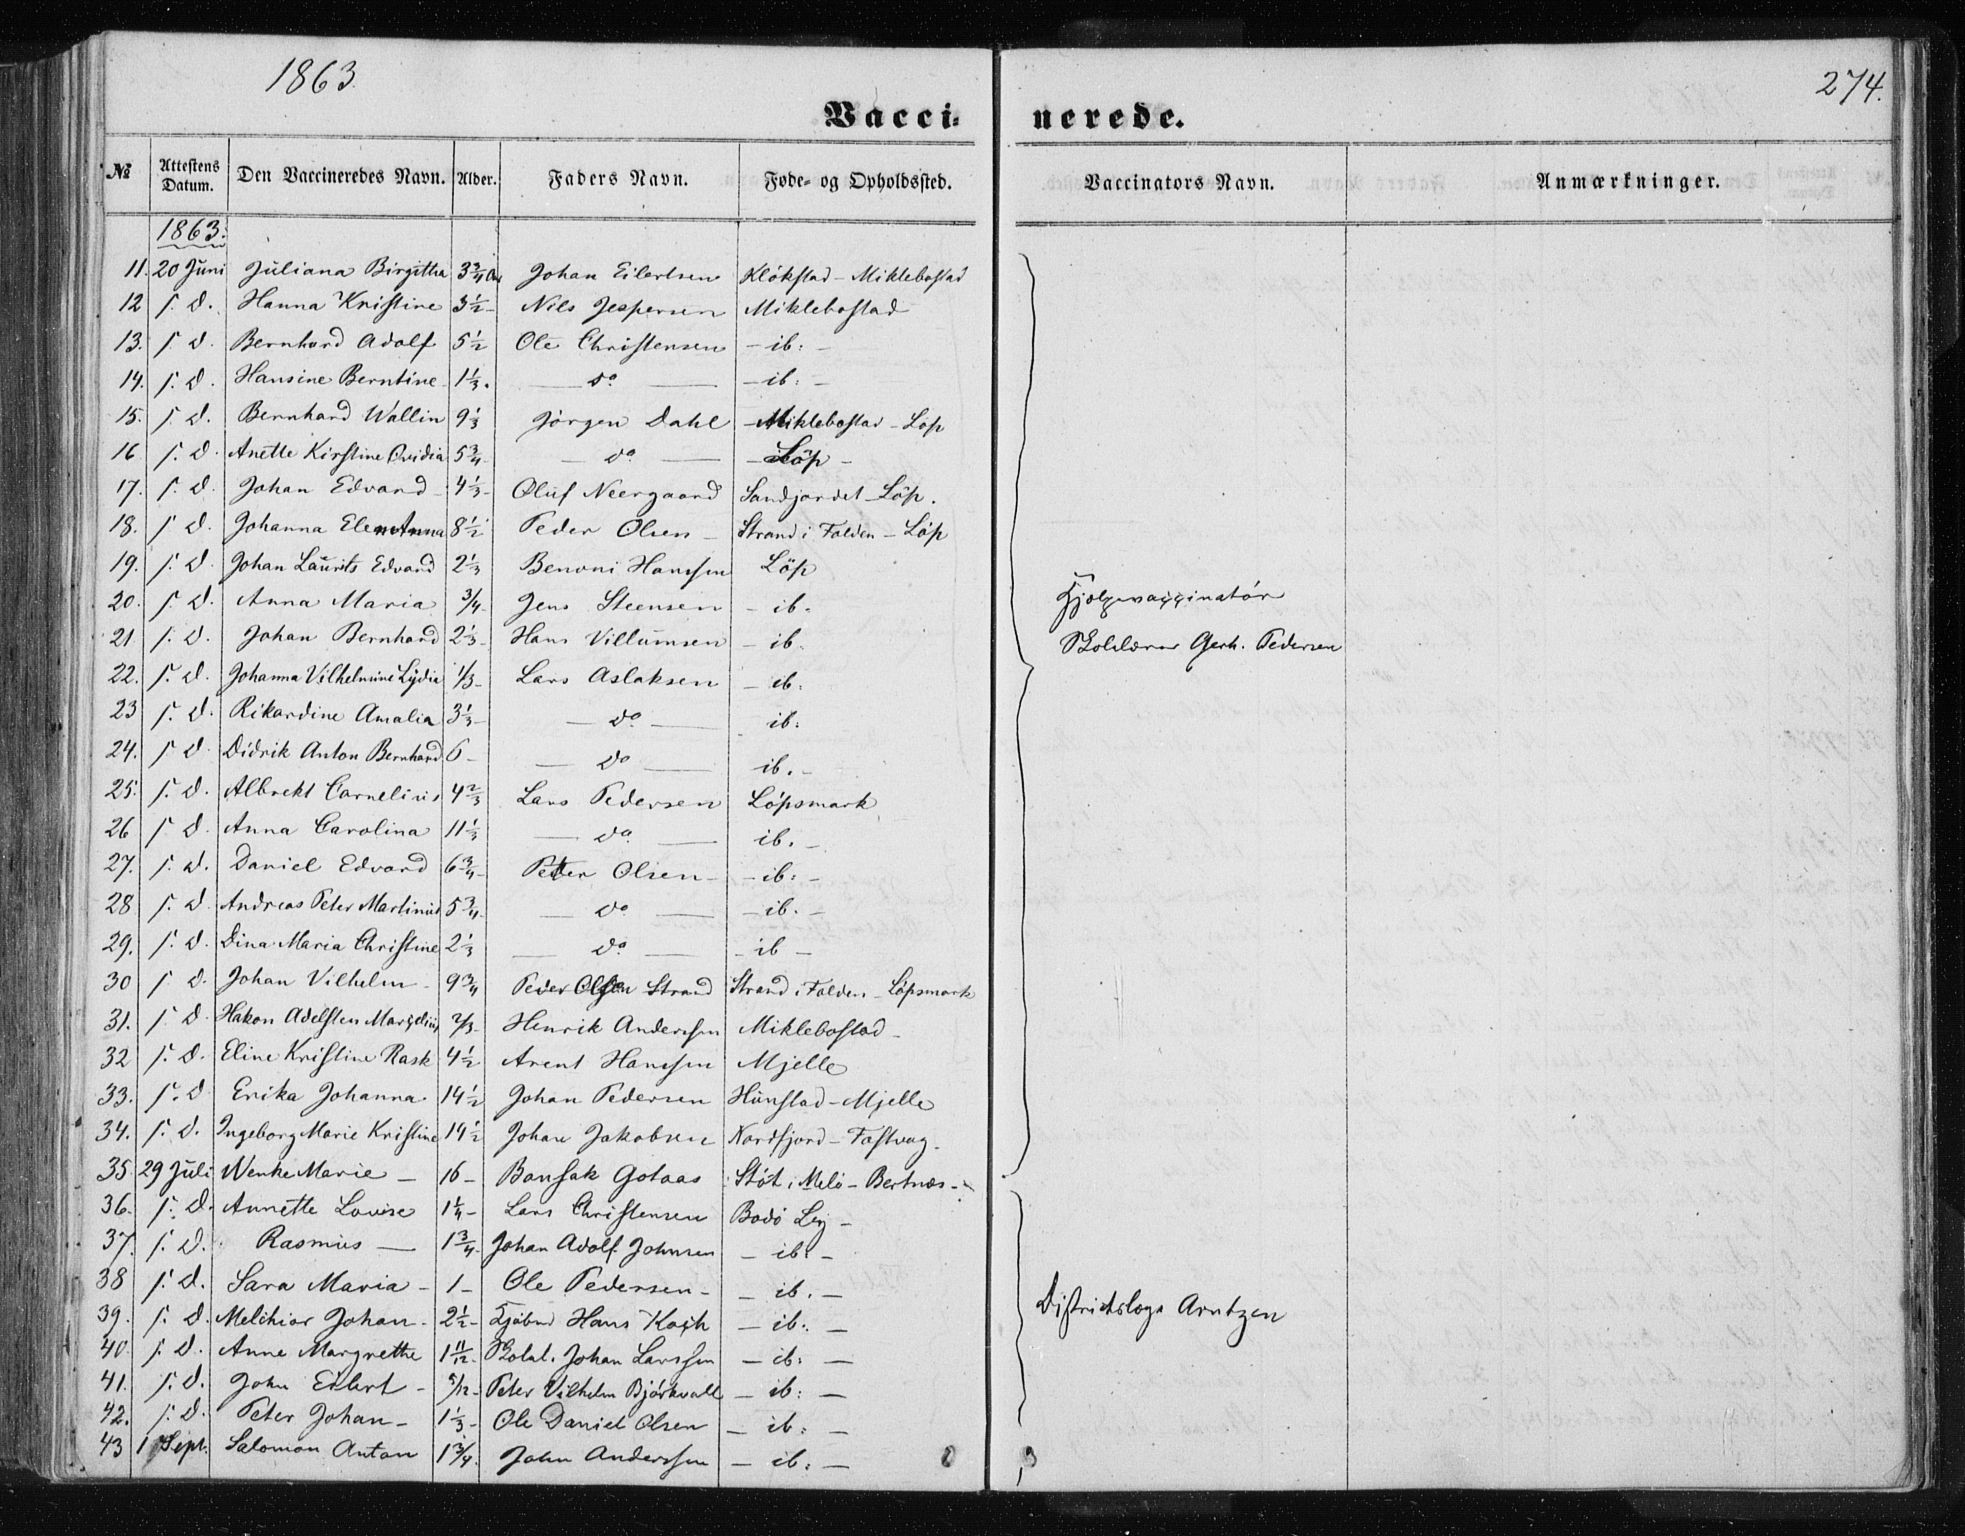 1863
274.
Vacci-
nerede.
№ Attestens Datum. Den Vaccineredes Navn. Alder. Faders Navn. Føde- og Opholdssted. Vaccinators Navn. Anmærkninger.
1863.
11. 20 Juni Juliana Birgitha 3 3/4 Johan Eilertsen Klökstad - Miklebostad
12 s. d. Hanna Kristine 3 1/2 - Nils Jespersen Miklebostad
13. s. d. Bernhard Adolf 5 1/2 Ole Christensen - ib: -
14. s. d. Hansine Berntine 1 1/3. — do — - ib: -
15. s. d. Bernhard Wallin 9 1/3 Jörgen Dahl - Miklebostad - Löp
16. s. d. Anette Kirstine Ovidia 5 3/4 - — do — - Löp -
17. s. d. Johan Edvard - 4 1/3 - Oluf Neergaard Sandjordet - Löp.
18. s. d. Johanna Elen Anna 8 1/2 Peder Olsen - Strand i Folden - Löp
19. s. d. Johan Laurits Edvard 2 1/3 Benoni Hanssen Löp
20. s. d. Anna Maria 3/4 - Jens Steensen - ib.
21 s. d. Johan Bernhard 2 1/3 - Hans Villumsen - ib.
Hjælpevaccinatör
Skolelærer Gerh. Pedersen
22. s. d. Johanna Vilhelmine Lydia 1/3 - Lars Aslaksen - ib:
23 s. d. Rikardine Amalia 3 1/3 - — do — ib:
24. s. d. Didrik Anton Bernhard 6 - — do — ib. -
25. s. d. Albrekt Cornelius 4 2/3 Lars Pedersen Löpsmark
26 s. d. Anna Carolina 11 1/3 — do — ib. -
27. s. d. Daniel Edvard 6 3/4 - Peter Olsen - - ib: -
28 s. d. Andreas Peter Martinus 5 3/4 - — do — - ib. -
29. s. d. Dina Maria Christine 2 1/3 — do — - ib -
30 s. d. Johan Vilhelm - 9 3/4 Peder Olsen Strand Strand i Folden - Löpsmark
31. s. d. Hakon Adelsten Marcelius 2/3 - Henrik Anderssen Miklebostad -
32 s. d. Eline Kristine Rask 4 1/2 Arent Hanssen Mjelle
33. s. d. Erika Johanna 14 1/2 Johan Pedersen Hunstad - Mjelle
34. s. d. Ingeborg Marie Kristine 14 1/2 Johan Jakobsen Nordfjord - Fastvag.
35 29 Juli Wenke Marie - 16 - Bonsak Gotaas Stöt i Melö - Bertnæs -
36. s. d. Annette Louise 1 1/4 - Lars Christensen Bodö
37. s. d. Rasmus — 1 3/4 - Johan Adolf Johnsen - ib: -
38 s. d. Sara Maria - 1 - Ole Pedersen - - ib. -
39. s. d. Melchior Johan - 2 1/2 - Hans Koch - ib: -
Districtslæge Arntzen
40. s. d. Anne Margrethe 1 11/12 - Skolel. Johan Larssen - ib: -
41. s. d. John Eilert - 5/12 - Peter Vilhelm Björkvall - ib: -
42. s. d. Peter Johan - 1 1/3 - Ole Daniel Olsen - ib: -
43 1 Sept. Salomon Anton 1 3/4. John Anderssen - ib: -